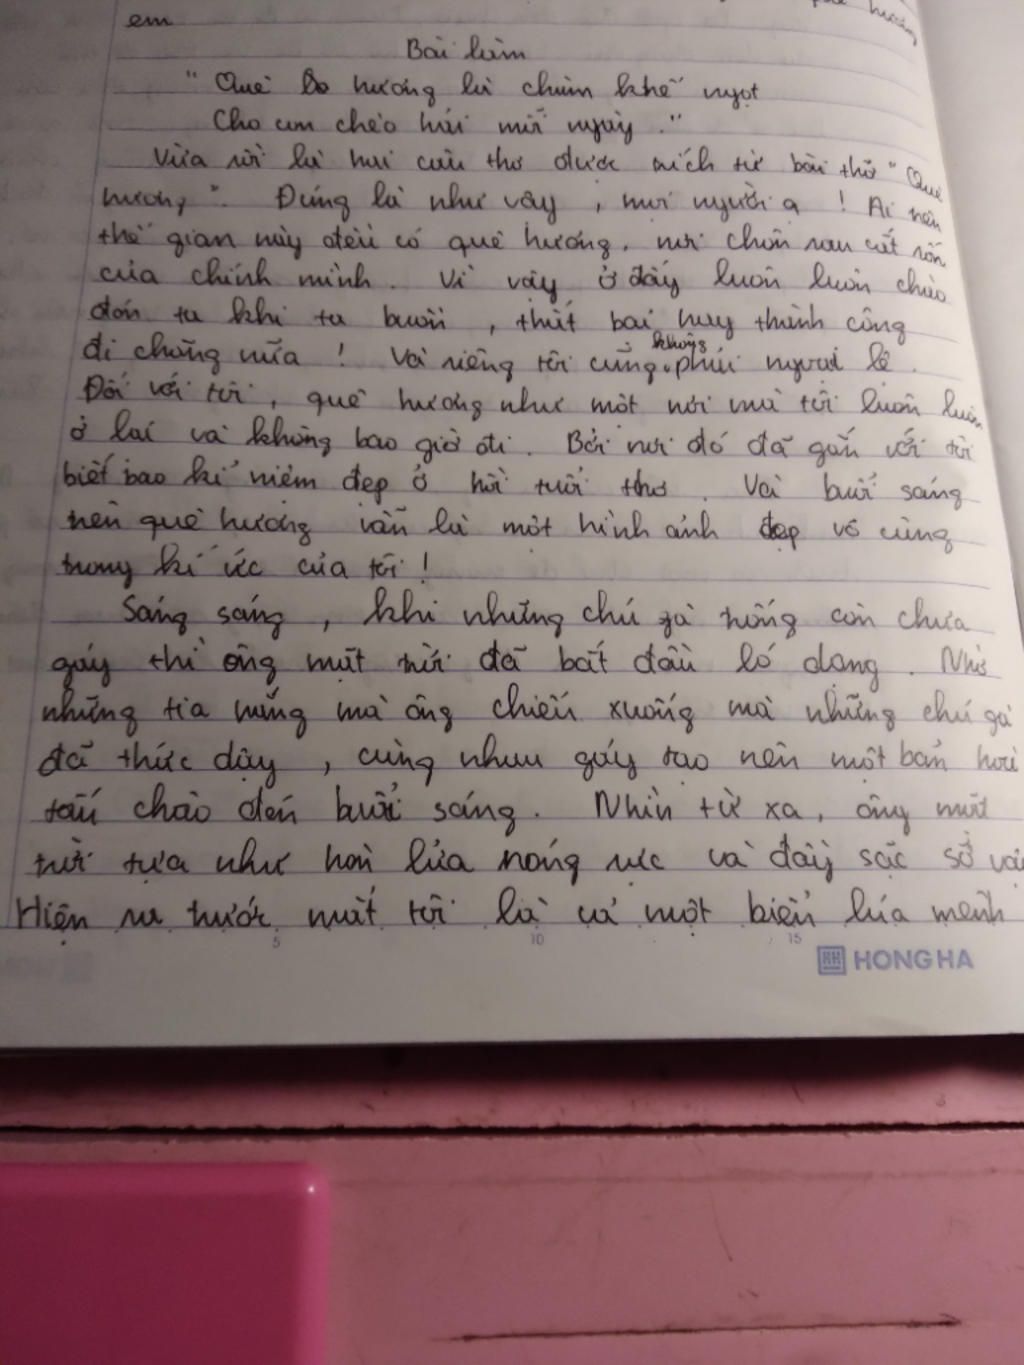 hương
em
Bài làm
" Quê hương là chùm khế ngọt
Cho con chèo hái mỗi ngày."
Vừa rồi là hai câu thơ được trích từ bài thơ " Quê
hương". Đúng là như vậy, mọi người ạ ! Ai trên
thế gian này đều có quê hương, nơi chôn rau cắt rốn
của chính mình. Vì vậy ở đây luôn luôn chào
đón ta khi ta buồn, thất bại hay thành công
đi chăng nữa ! Và riêng tôi cũng không phải ngoại lệ.
Đối với tôi, quê hương như một nơi mà tôi luôn luôn
ở lại và không bao giờ đi. Bởi nơi đó đã gắn với tôi
biết bao kỉ niệm đẹp ở hồi tuổi thơ. Và buổi sáng
trên quê hương vẫn là một hình ảnh đẹp vô cùng
trong kí ức của tôi !
Sáng sáng, khi những chú gà trống còn chưa
gáy thì ông mặt trời đã bắt đầu ló dạng. Nhờ
những tia nắng mà ông chiếu xuống mà những chú gà
đã thức dậy, cùng nhau gáy tạo nên một bản hoà
tấu chào đón buổi sáng. Nhìn từ xa, ông mặt
trời tựa như hòn lửa nóng rực và đầy sặc sỡ vậy
Hiện ra trước mắt tôi là cả một biển lúa mênh
5 10 15
HONG HA